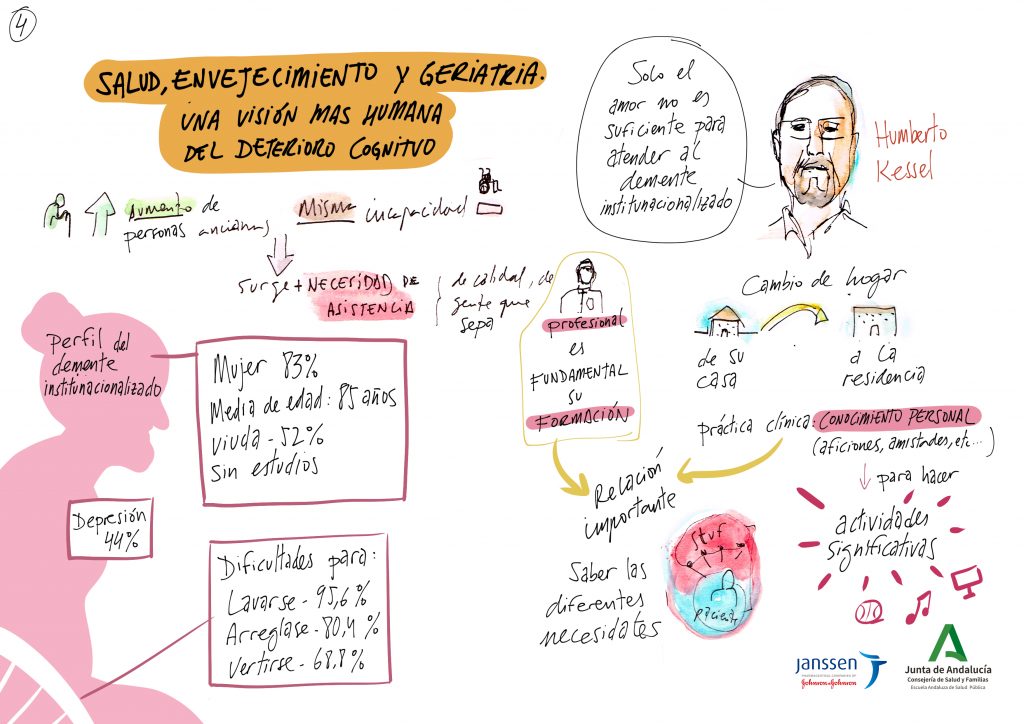 4
SALUD, ENVEJECIMIENTO Y GERIATRIA.
UNA VISIÓN MAS HUMANA
DEL DETERIORO COGNITVO
Solo el
amor no es
suficiente para
atender al
demente
institunacionalizado
Humberto
Kessel
aumento de
personas ancianas
Misma incapacidad
surge + NECESIDAD DE
ASISTENCIA
de calidad, de
gente que
sepa
profesional
es
FUNDAMENTAL
SU
FORMACIÓN
Cambio de hogar
de su
casa
a la
residencia
Perfil del
demente
institunacionalizado
Mujer 83%
Media de edad: 85 años
viuda - 52%
Sin estudios
Depresión
44%
Dificultades para:
Lavarse - 95,6%
Arreglase - 80,4 %
Vertirse - 68,8%
práctica clínica: CONOCIMIENTO PERSONAL
(aficiones, amistades, etc...)
para hacer
actividades
significativas
Relación
importante
Saber las
diferentes
necesidates
Stuf
Paciente
janssen
PHARMACEUTICAL COMPANIES OF
Johnson & Johnson
Junta de Andalucía
Consejería de Salud y Familias
Escuela Andaluza de Salud Pública